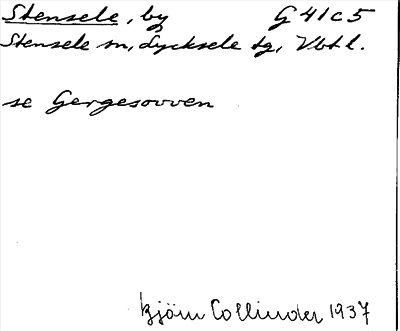 Stensele, by G 41 c 5
Stensele sn, Lycksele tg, Vbtl.
se Gergesovven
Björn Collinder 1937